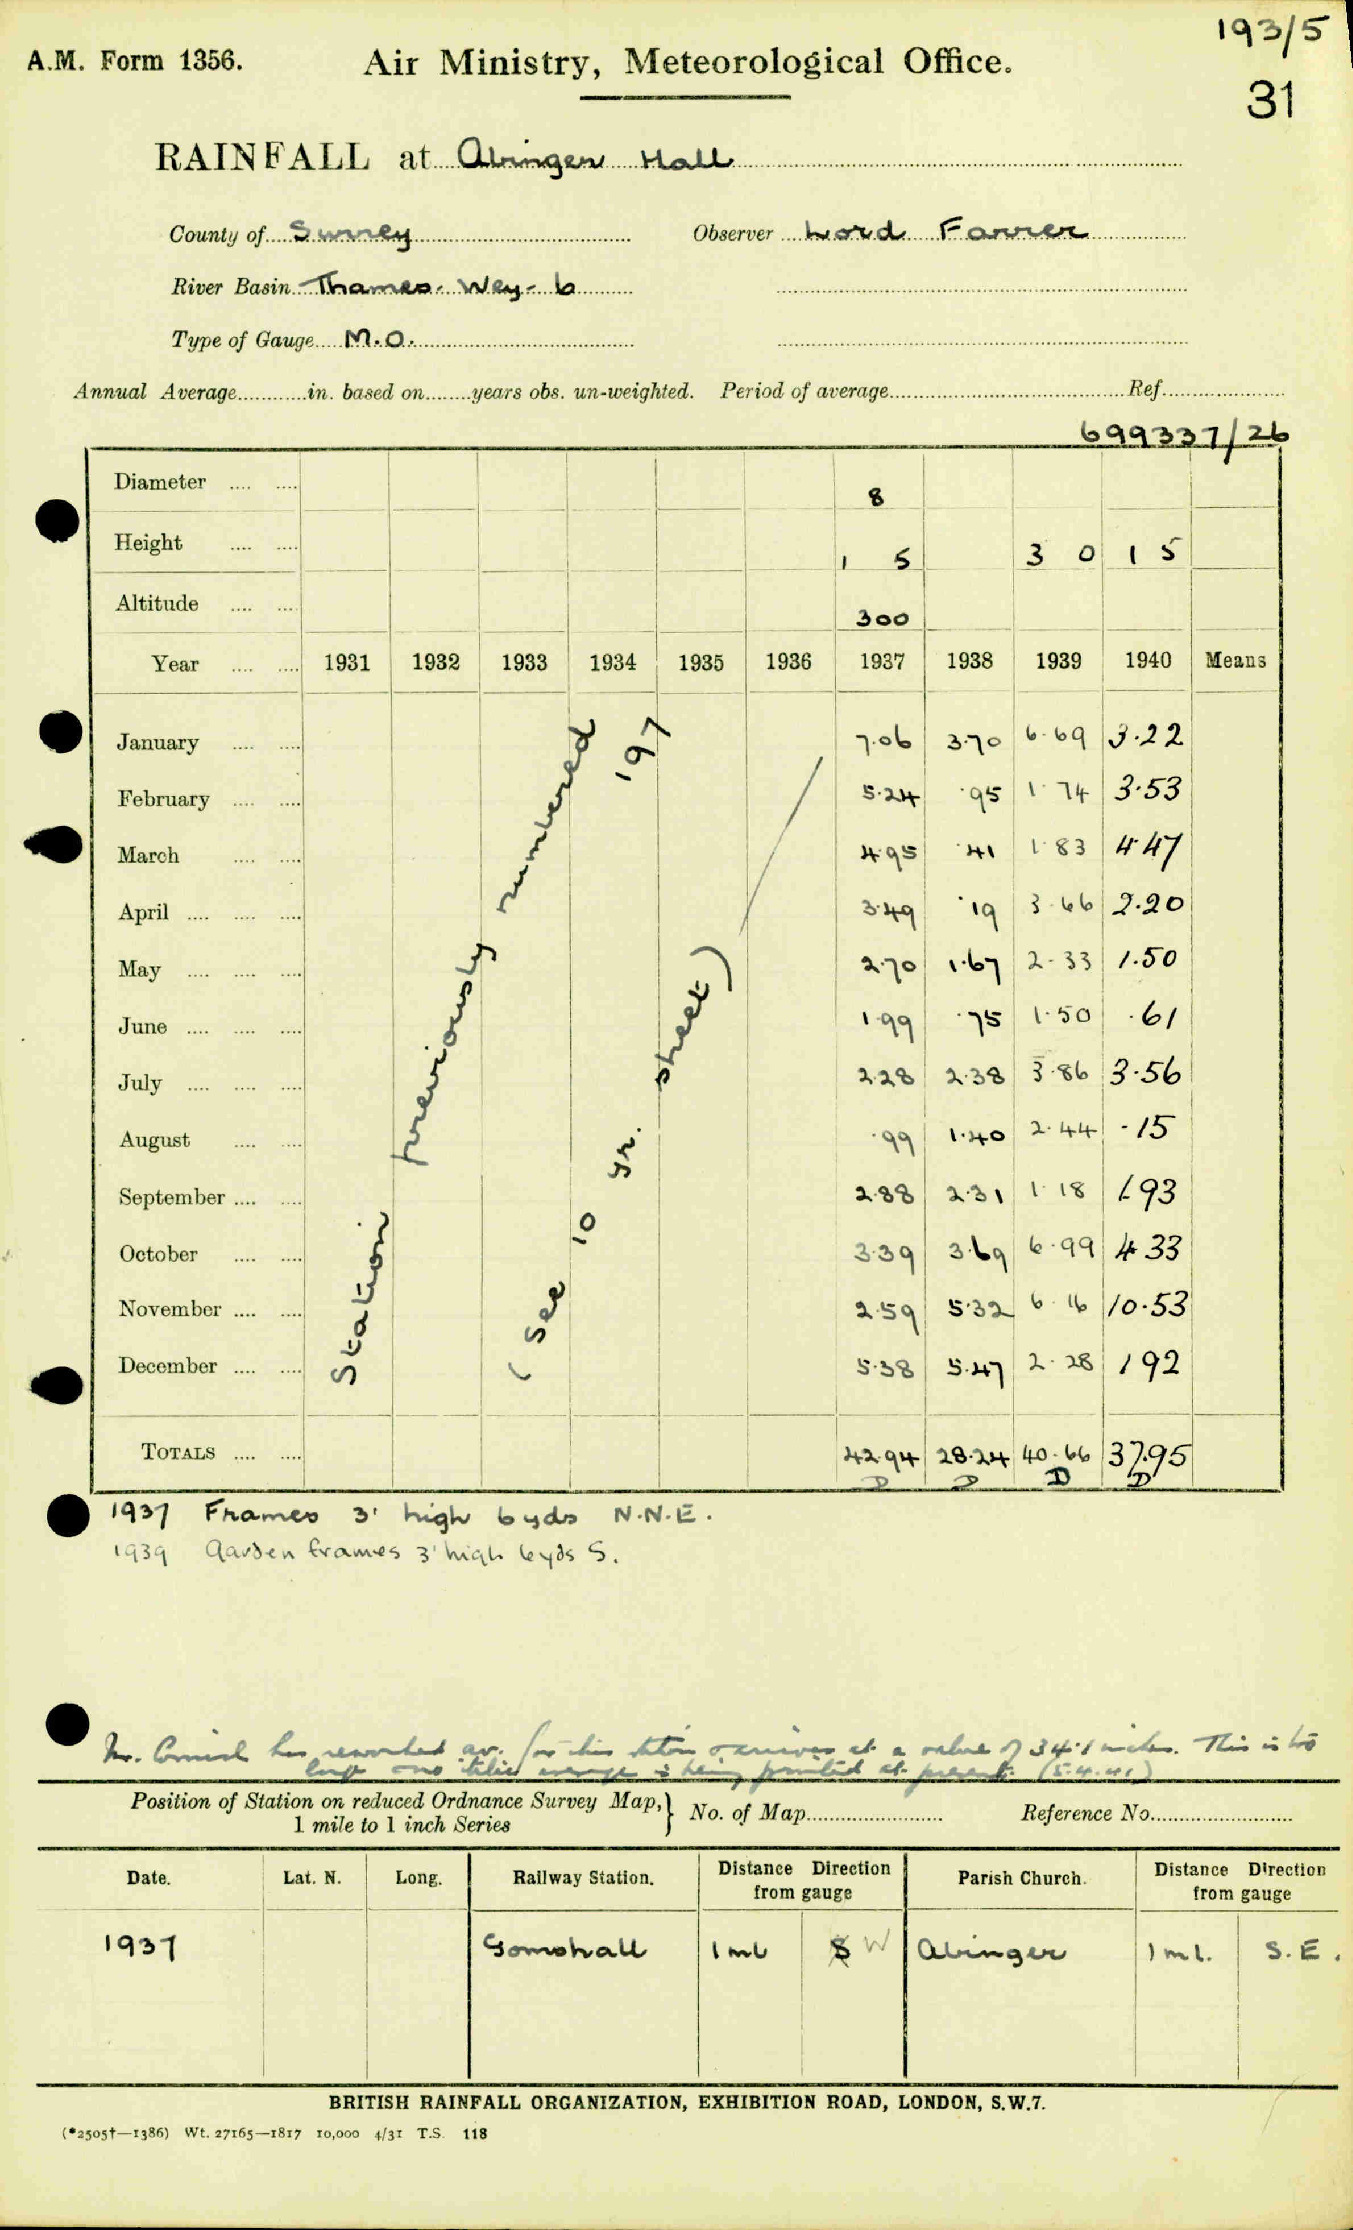 193/5
A.M. Form 1356. Air Ministry, Meteorological Office.
31
RAINFALL at Abinger Hall
County of Surrey Observer Lord Farrer
River Basin Thames - Wey - 6
Type of Gauge M.O.
Annual Average in. based on years obs. un-weighted. Period of average Ref.
699337/26
Diameter 8
Height 1 5 3 0 1 5
Altitude 300
Year 1931 1932 1933 1934 1935 1936 1937 1938 1939 1940 Means
January 7.06 3.70 6.69 3.22
February 5.24 .95 1.74 3.53
March 4.95 .41 1.83 4.47
April 3.49 .19 3.66 2.20
May 2.70 1.67 2.33 1.50
June 1.99 .75 1.50 .61
July 2.28 2.38 3.86 3.56
August .99 1.40 2.44 .15
September 2.88 2.31 1.18 1.93
October 3.39 3.69 6.99 4.33
November 2.59 5.32 6.16 10.53
December 5.38 5.47 2.28 1.92
TOTALS 42.94 28.24 40.66 37.95
D D D D
Station previously numbered 197
(See 10 yr. sheet)
1937 Frames 3' high 6yds N.N.E.
1939 Garden frames 3' high 6yds S.
has reworked av. for this station & arrives at a value of 34.1 inches. This is too
average is being printed at present. (5.4.41)
Position of Station on reduced Ordnance Survey Map, } No. of Map Reference No.
1 mile to 1 inch Series
Date. Lat. N. Long. Railway Station. Distance Direction from gauge Parish Church. Distance Direction from gauge
1937 Gomshall 1 ml S W Abinger 1 ml. S.E.
BRITISH RAINFALL ORGANIZATION, EXHIBITION ROAD, LONDON, S.W.7.
(*2505†—1386) Wt. 27165—1817 10,000 4/31 T.S. 118